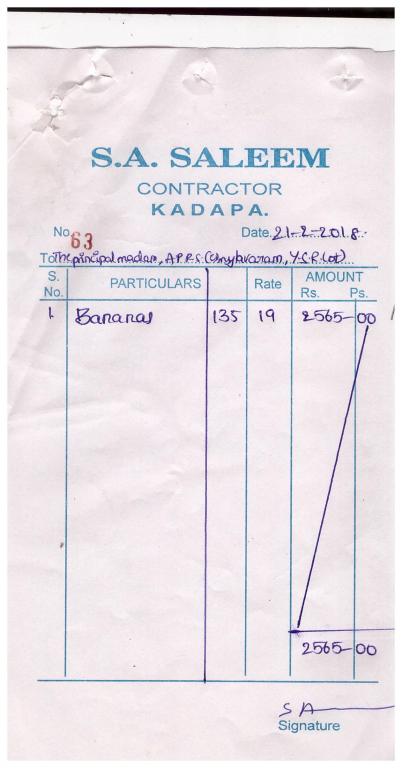 S.A. SALEEM
CONTRACTOR
KADAPA.
No. 63 Date. 21-2-2018.
To The principal madam, A.P.R.S.
S. No. PARTICULARS Rate AMOUNT Rs. Ps.
1. Bananas 135 19 2565-00
2565-00
SA
Signature